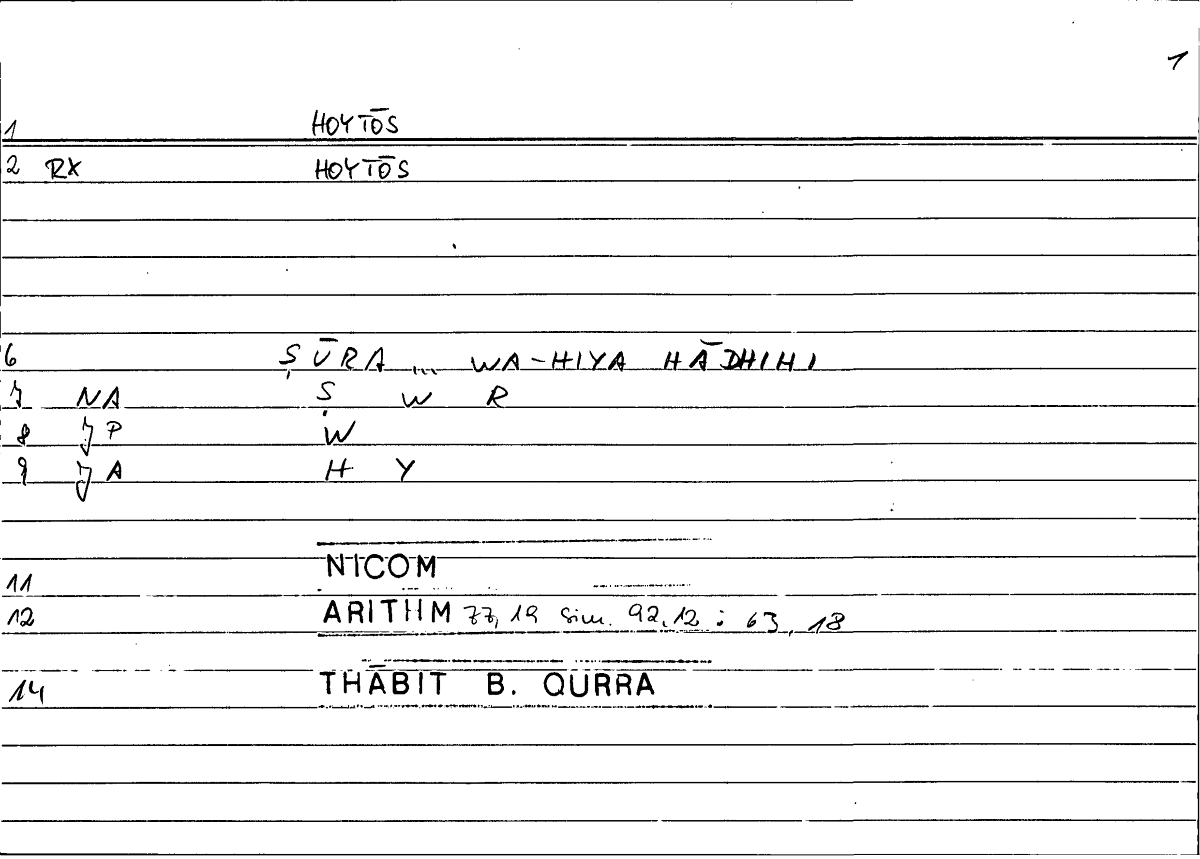 1
1 HOYTŌS
2 RX HOYTŌS
6 ṢŪRA ... WA-HIYA HĀDHIHI
7 NA Ṣ W R
8 JP W
9 JA H Y
11 NICOM
12 ARITHM 77,19 sim. 92,12 : 63,18
14 THĀBIT B. QURRA